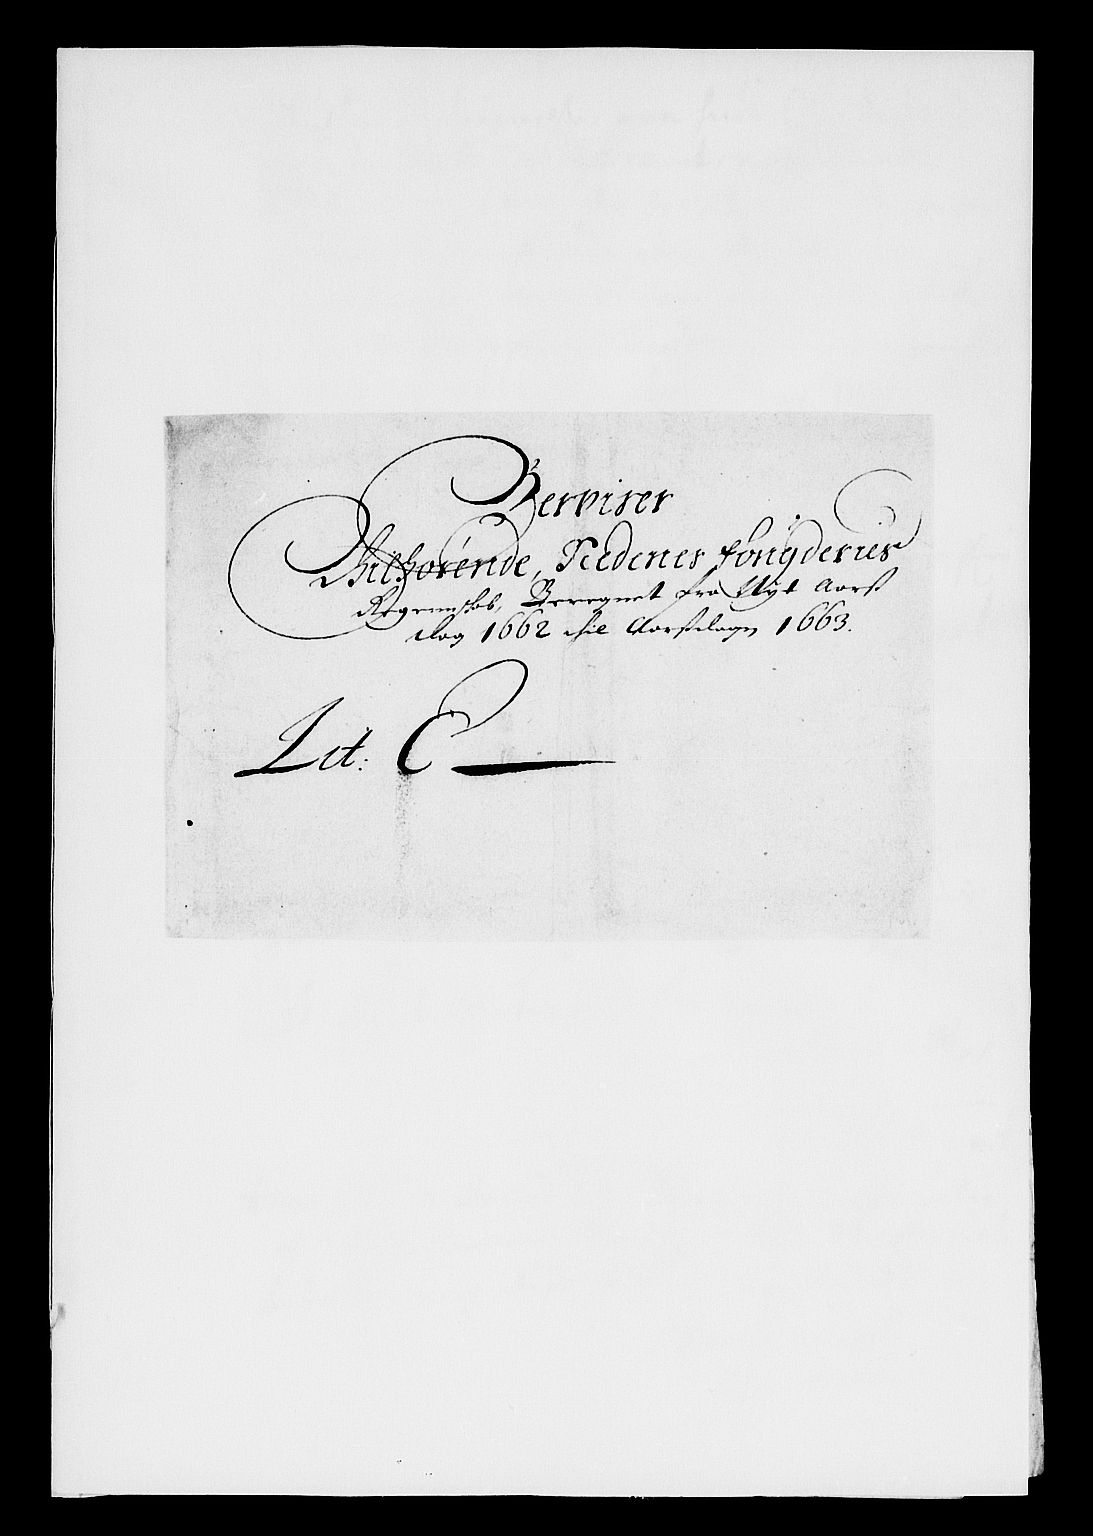 Bevviser
Thilhørende, Nedenes fougderies
Regennskab, Beregnet fra Nyt Aars
dag 1662 thil Aarsdagen 1663.
Lit: C